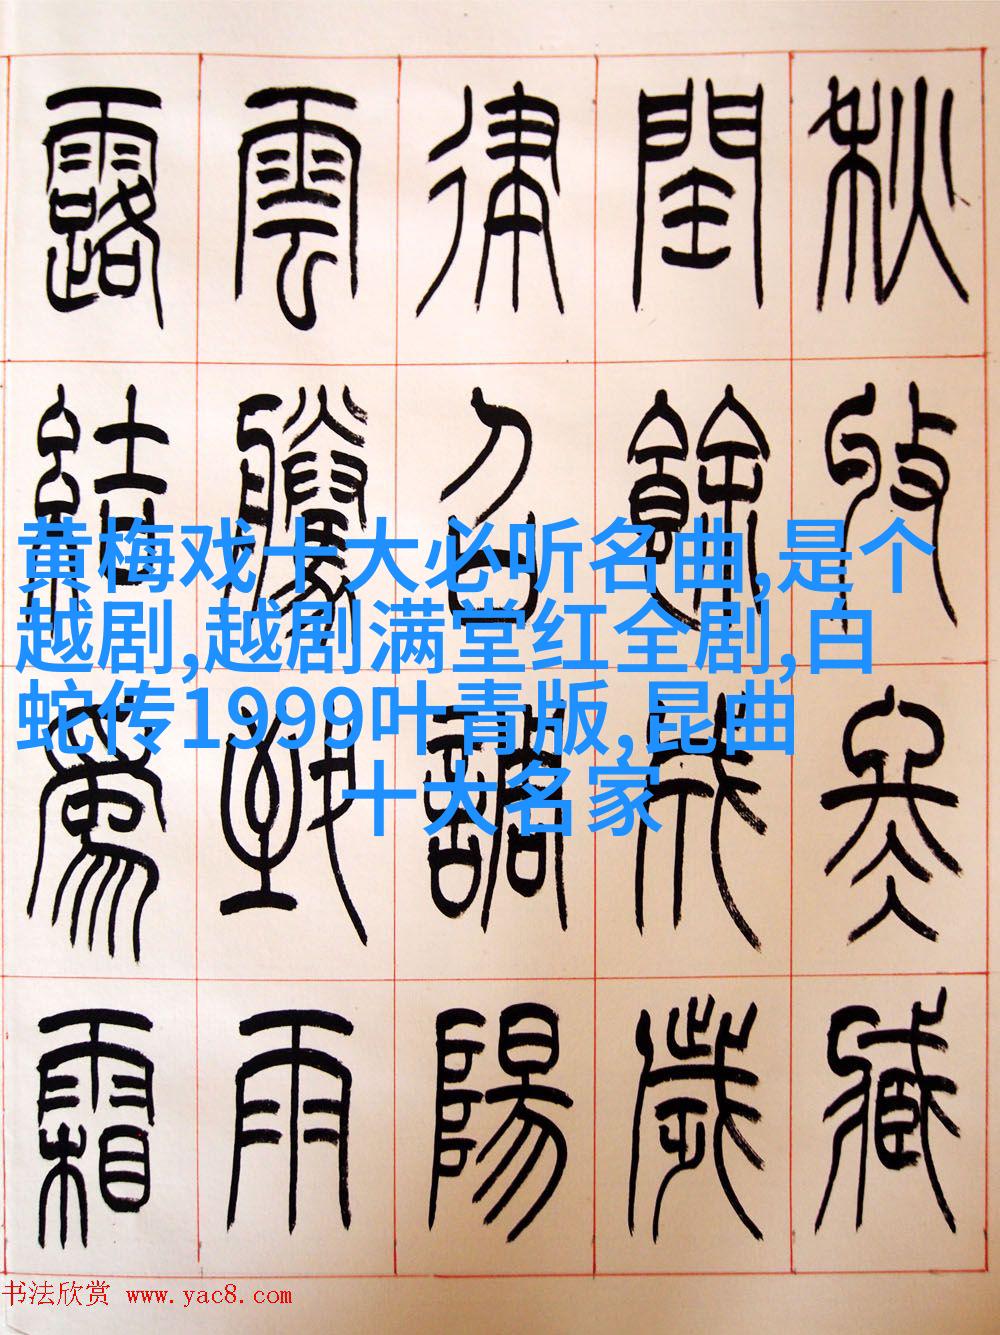 秋收冬臧
閏餘成歲
律召調陽
雲騰致雨
露結爲霜
黄梅戏十大必听名曲,是个
越剧,越剧满堂红全剧,白
蛇传1999叶青版,昆曲
十大名家
书法欣赏 www.yac8.com